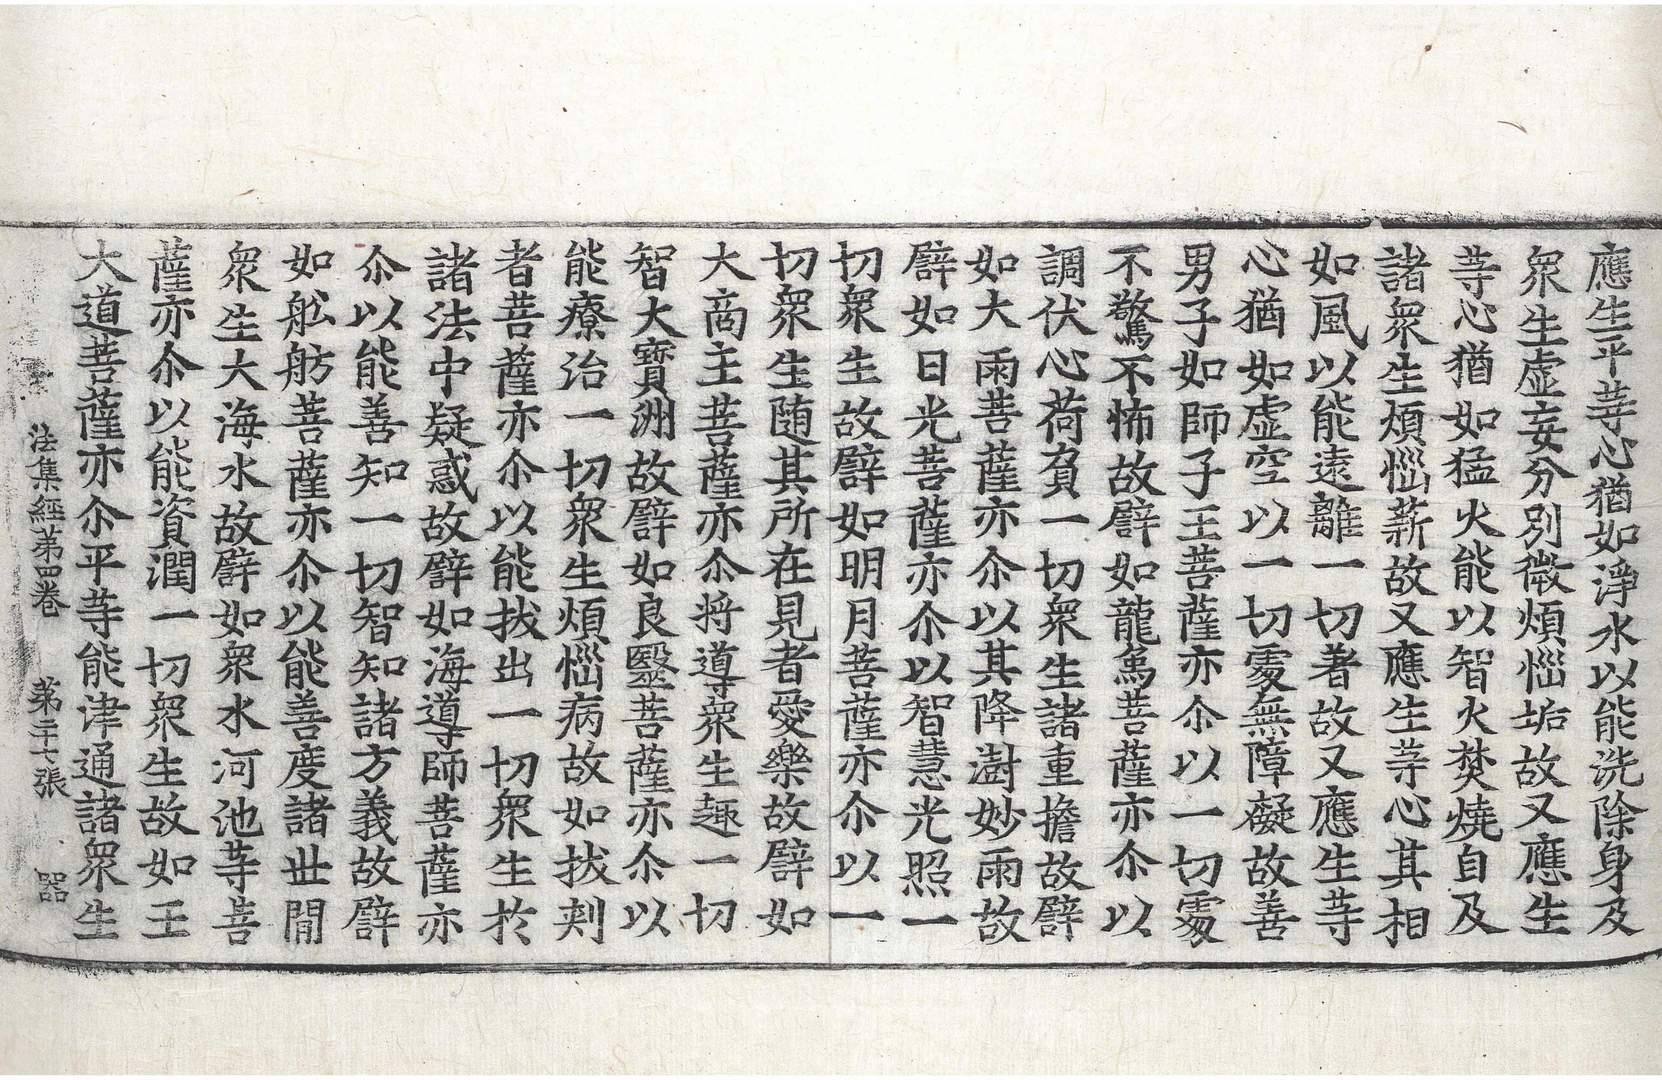 應生平等心猶如淨水以能洗除身及
衆生虛妄分別微煩惱垢故又應生
等心猶如猛火能以智火焚燒自及
諸衆生煩惱薪故又應生等心其相
如風以能遠離一切著故又應生等
心猶如虛空以一切處無障礙故善
男子如師子王菩薩亦尒以一切處
不驚不怖故譬如龍象菩薩亦尒以
調伏心荷負一切衆生諸重擔故譬
如大雨菩薩亦尒以其降澍妙雨故
譬如日光菩薩亦尒以智慧光照一
切衆生故譬如明月菩薩亦尒以一
切衆生随其所在見者愛樂故譬如
大商主菩薩亦尒將導衆生趣一切
智大寶洲故譬如良毉菩薩亦尒以
能療治一切衆生煩惱病故如拔刾
者菩薩亦尒以能拔出一切衆生於
諸法中疑惑故譬如海導師菩薩亦
尒以能善知一切智知諸方義故譬
如舩舫菩薩亦尒以能善度諸世閒
衆生大海水故譬如衆水河池等菩
薩亦尒以能資潤一切衆生故如王
大道菩薩亦尒平等能津通諸衆生
法集經第四卷　第二十七張　器